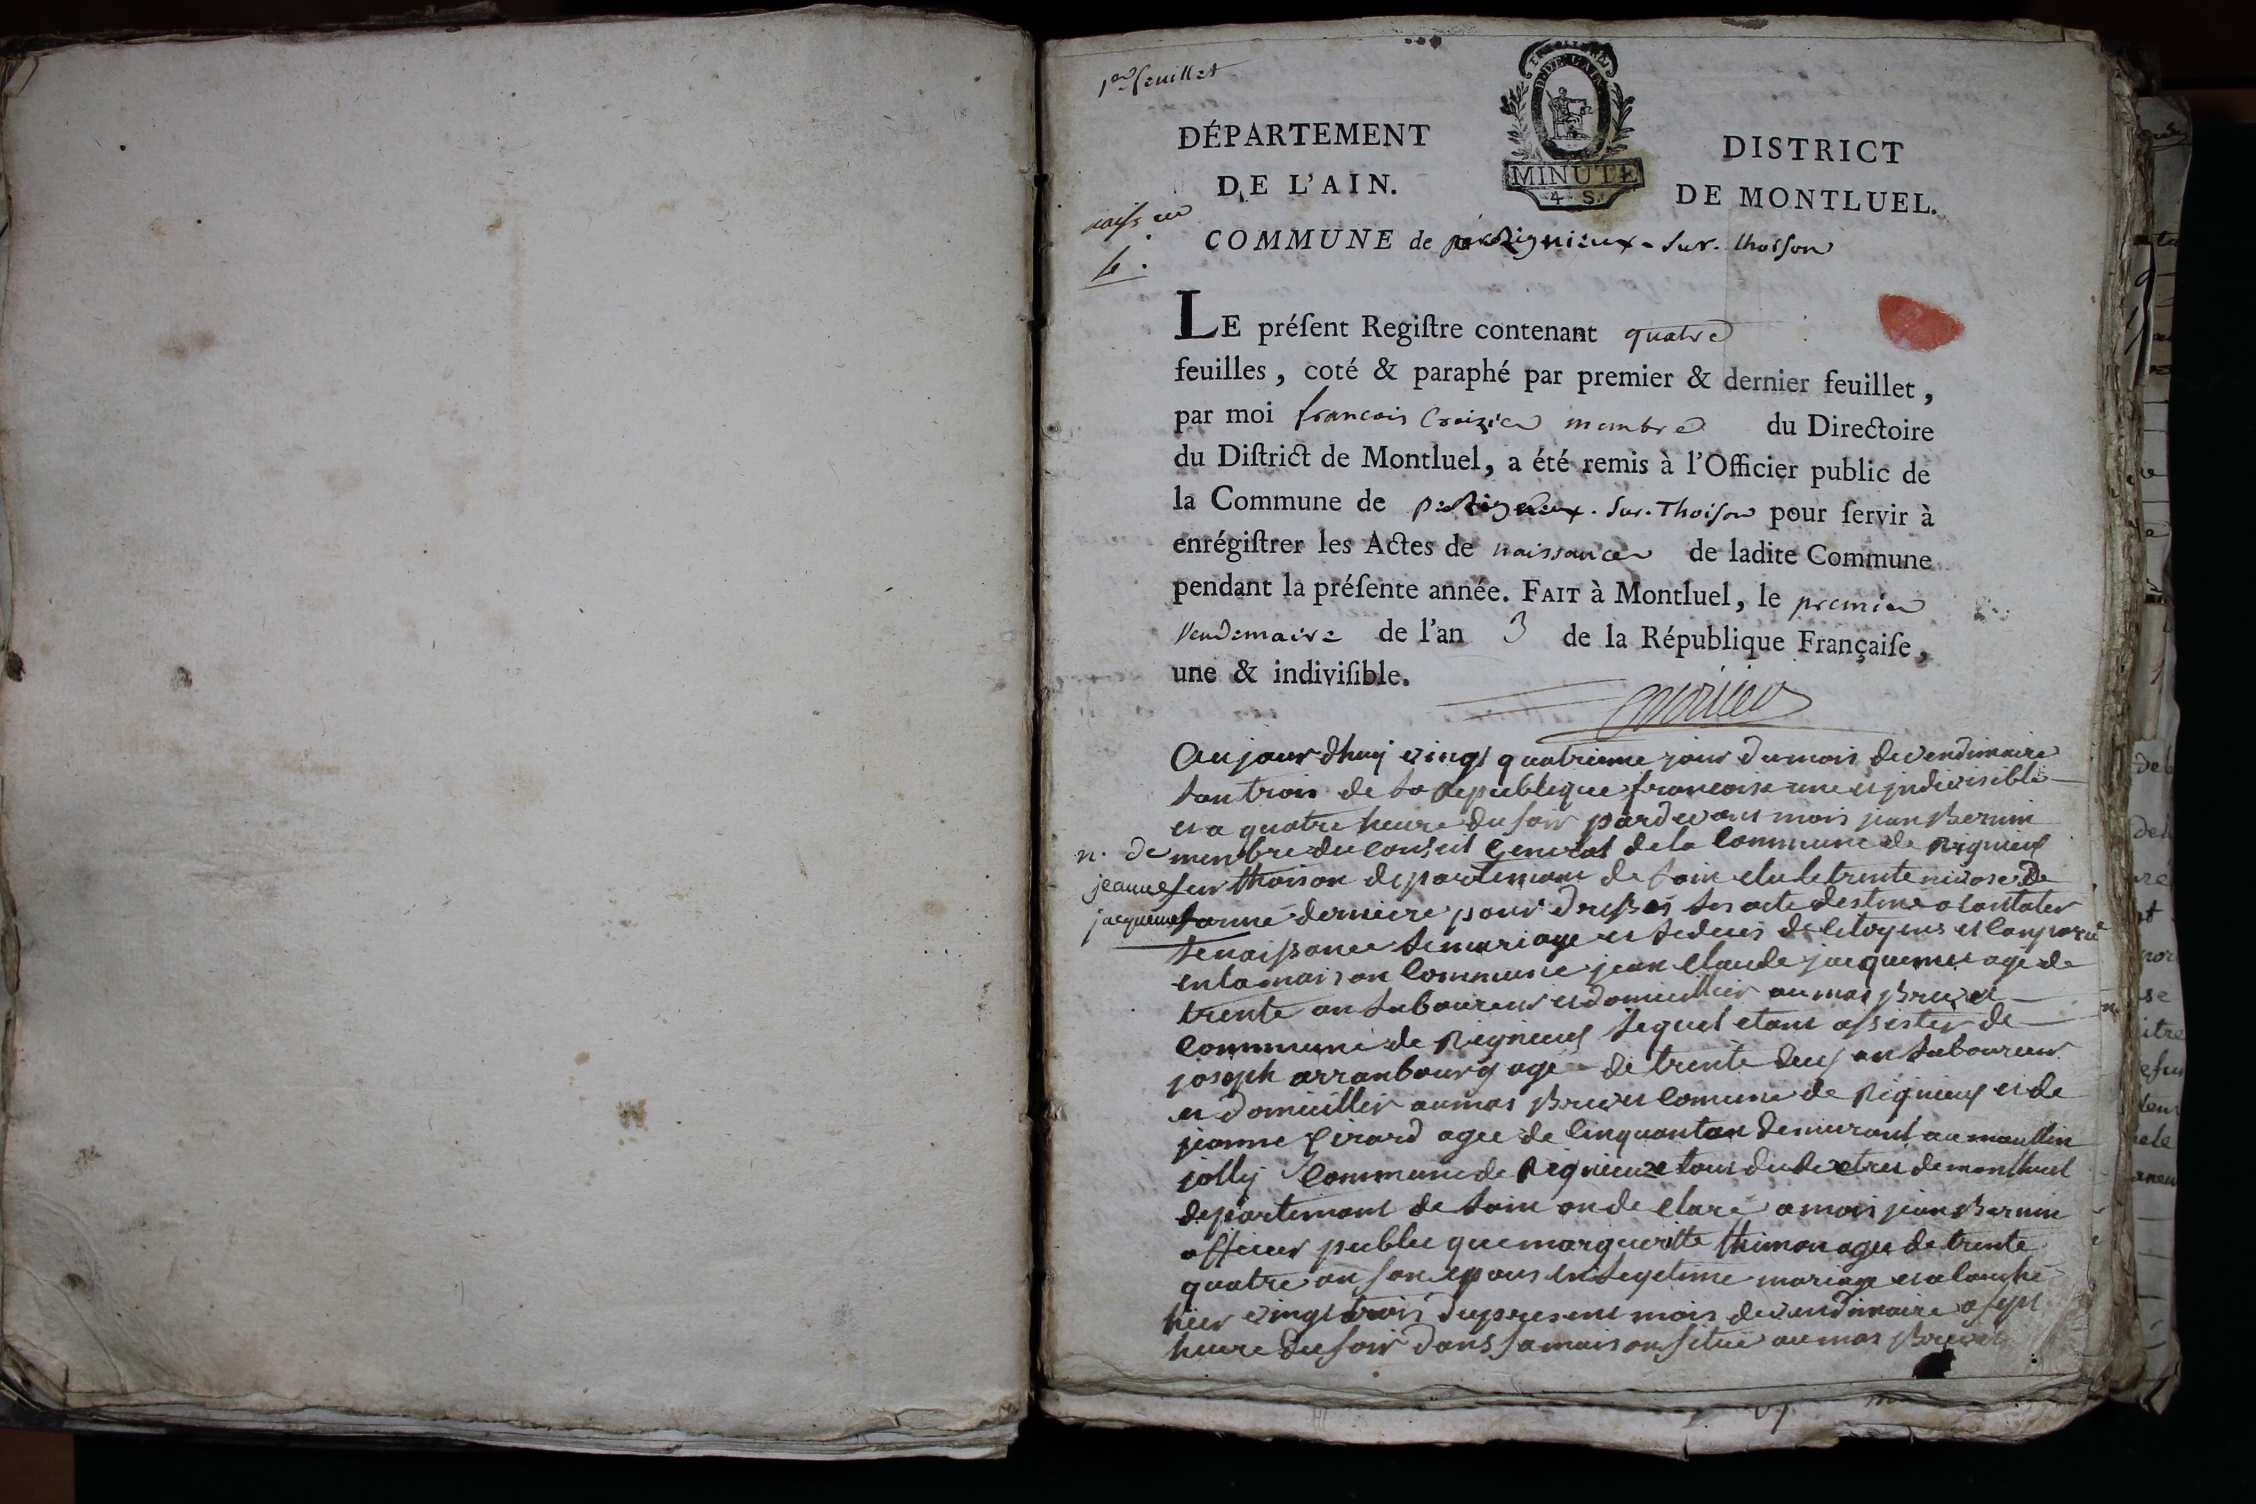 1er feuillet
DÉPARTEMENT
DE L'AIN.
MINUTE
4 S.
DISTRICT
DE MONTLUEL.
COMMUNE de Rignieux - sur - thoison
LE préſent Regiſtre contenant quatre
feuilles, coté & paraphé par premier & dernier feuillet,
par moi francois Croizier membre du Directoire
du Diſtrict de Montluel, a été remis à l'Officier public de
la Commune de Rignieux . sur . Thoison pour ſervir à
enrégiſtrer les Actes de naissances de ladite Commune
pendant la préſente année. FAIT à Montluel, le premier
vendemaire de l'an 3 de la République Françaiſe,
une & indiviſible.
n. de
jeanne
jacquemet
Aujourdhuy vingt quatrieme jour du mois de vendimaire
lan trois de la Republique francoise une et jndivisible
et a quatre heure du soir pardevant mois jean Bernin
membre du conseil General de la Commune de Rignieux
sur thoison departemant de lain elu le trente nivose de
lanné derniere pour dresser les acte destine a constater
le naissance le mariage et le deces de Citoyens et Comparu
en la maison Commune jean claude jacquemet age de
trente an laboureur et domicillier au mas Bruyet
Commune de Rignieux lequel etant assister de
joseph arranbourg age de trente deux an laboureur
et domicillier au mas Bruyet Comune de Rignieux et de
jeanne Girard agee de Cinquantan demeurant au moullin
jolly Commune de Rignieux tous du detres de montluel
departemant de lain on declare a mois jean Bernin
officier public que margueritte thimon agee de trente
quatre an son epous en legetime mariage et alouche
hier vingt trois du present mois de vendimaire a sept
heure du soir dans sa maison situé au mas Bruyet